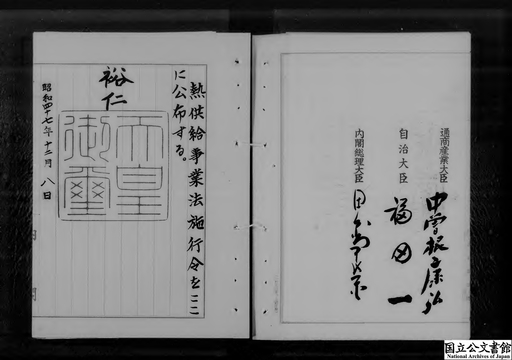 熱供給事業法施行令をここ
に公布する。
裕仁
天皇
御璽
昭和四十七年十二月八日
内閣
通商産業大臣 中曽根康弘
自治大臣 福田一
内閣総理大臣 田中角榮
国立公文書館
National Archives of Japan